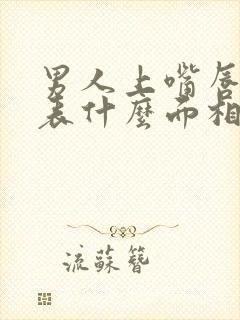 男人上嘴唇
表什麼面相
流蘇簪